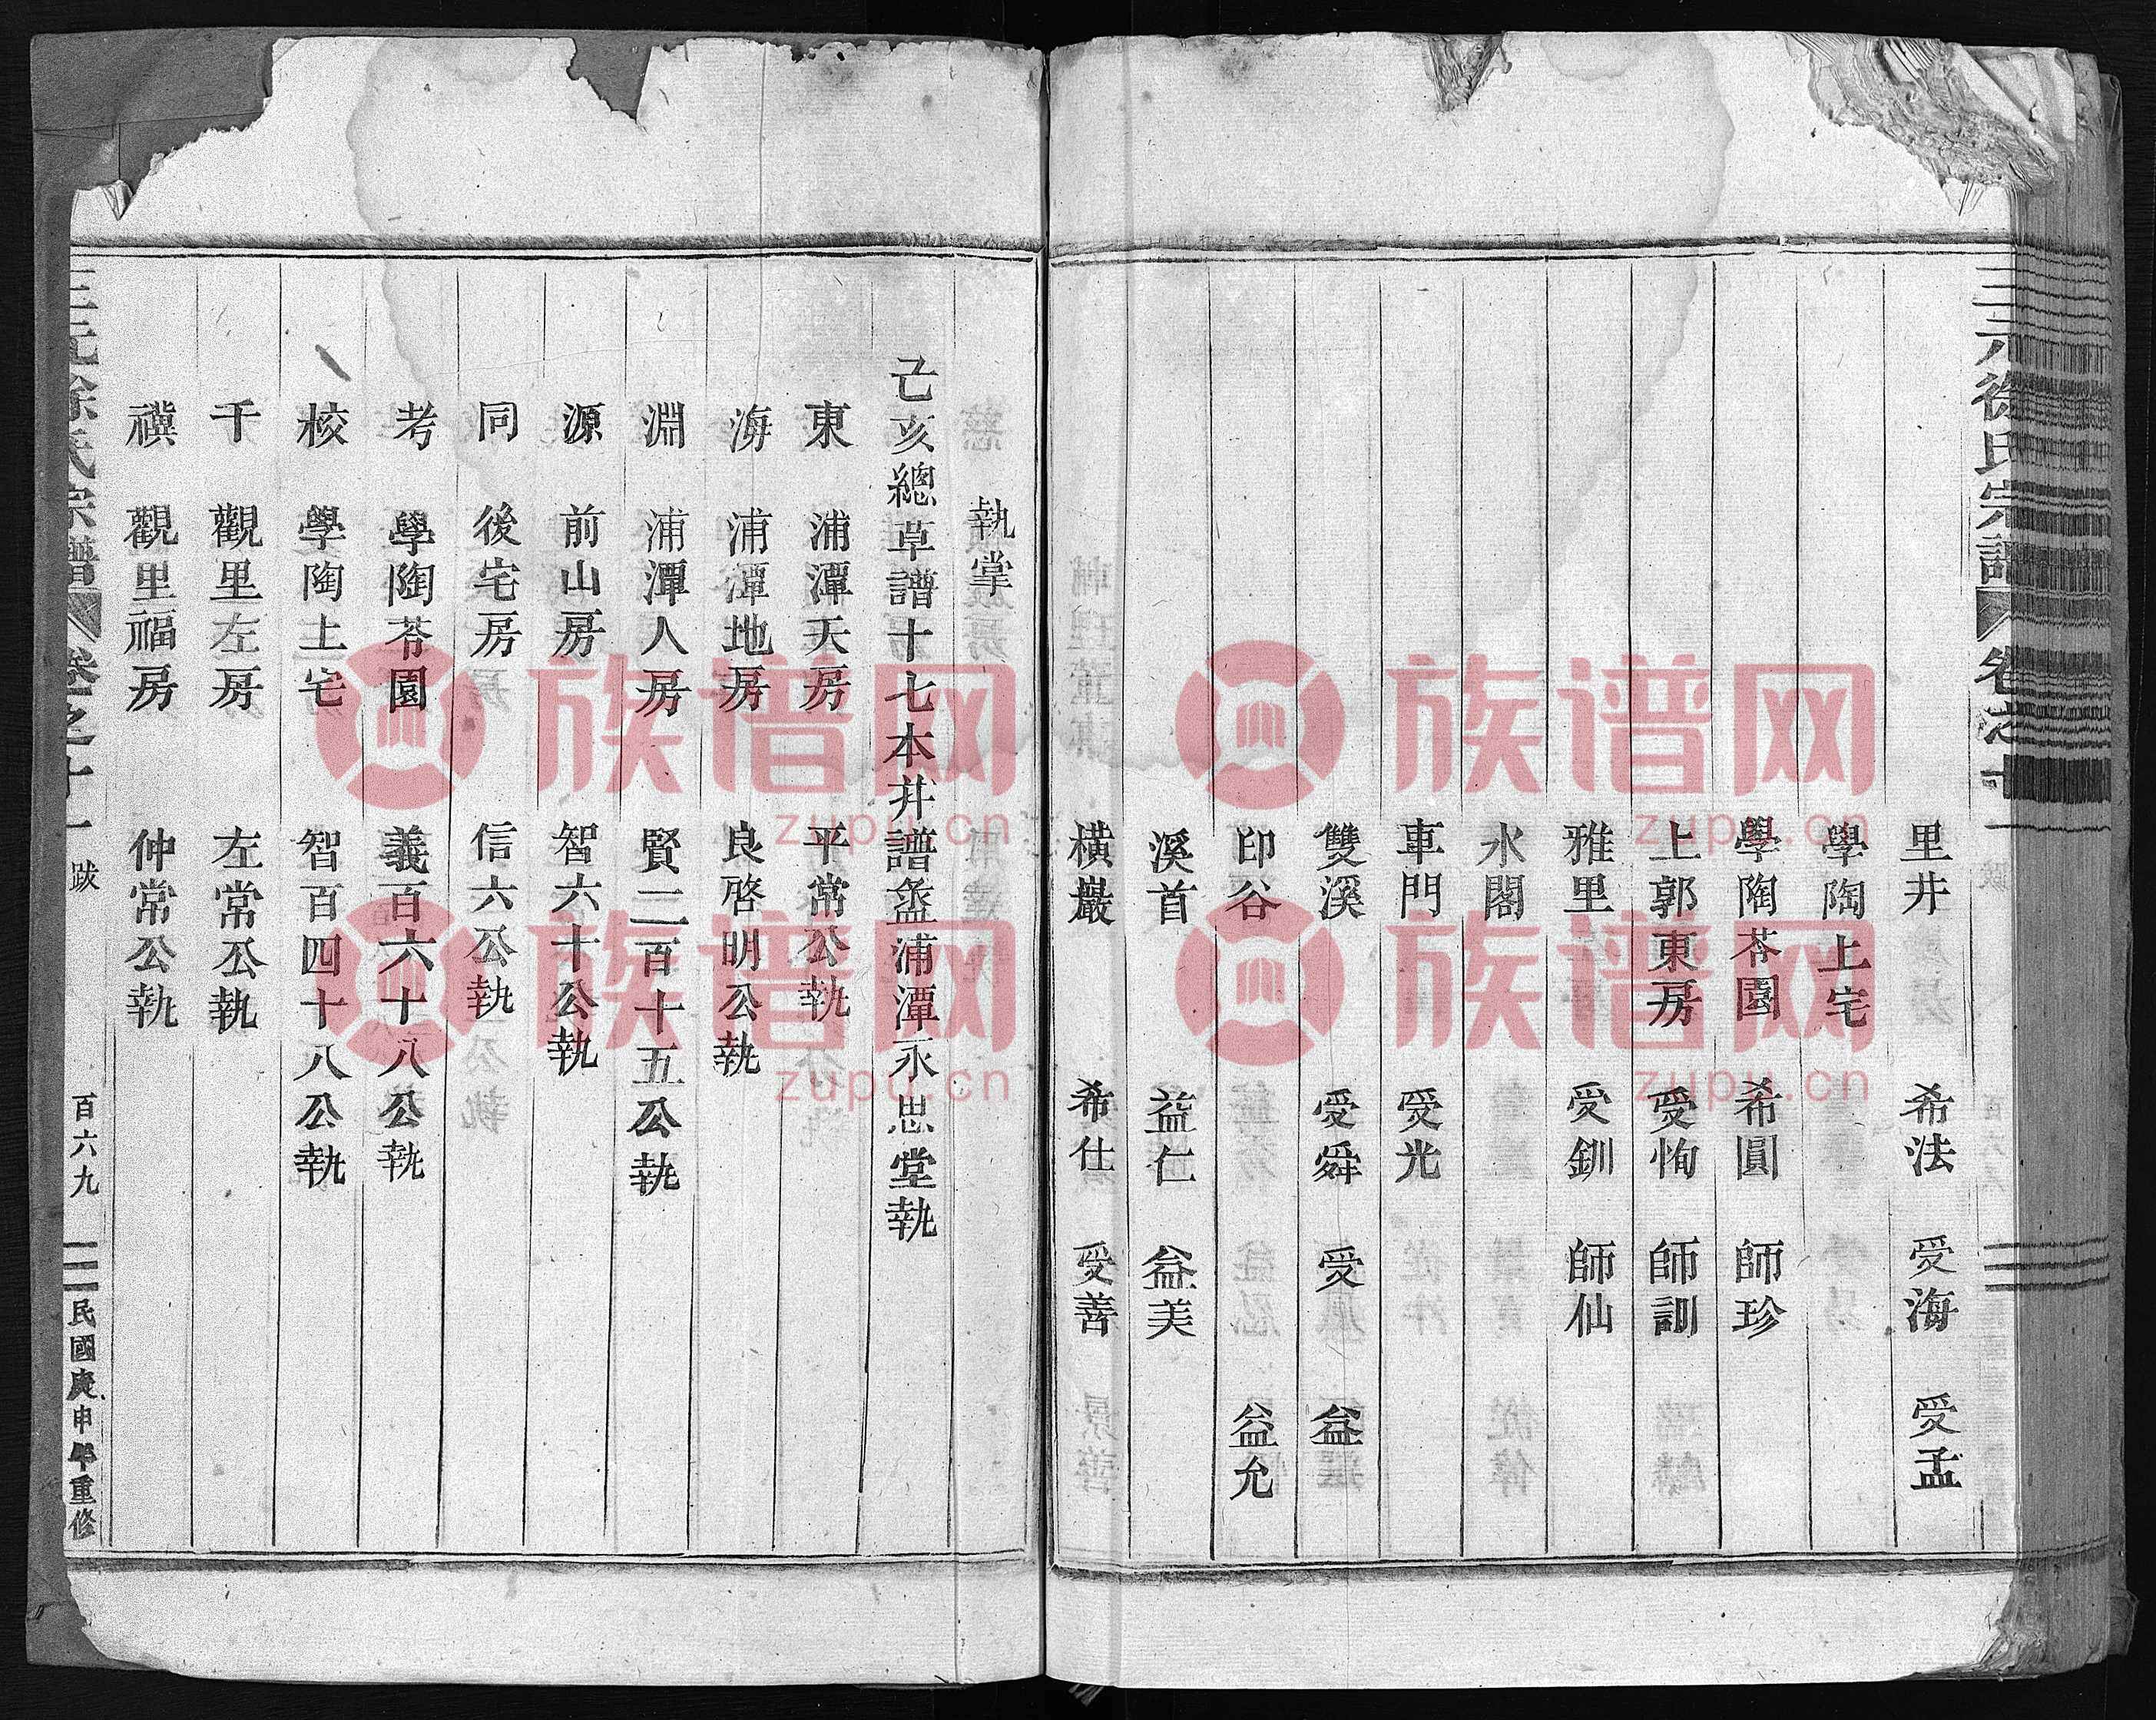 里井 希法 受海 受孟
學陶上宅
學陶苓園 希圓 師珍
上郭東房 受恂 師訓
雅里 受釧 師仙
水閣
車門 受光
雙溪 受舜 受 益
印谷 益允
溪首 益仁 益美
橫巖 希仕 受善
執掌
亡亥總草譜十七本并譜盔浦潭永思堂執
東 浦潭天房 平常公執
海 浦潭地房 良啓明公執
淵 浦潭人房 賢二百十五公執
源 前山房 智六十公執
同 後宅房 信六公執
考 學陶苓園 義百六十八公執
校 學陶上宅 智百四十八公執
千 觀里左房 左常公執
禩 觀里福房 仲常公執
徐氏宗譜 卷之十一 跋 百六九 民國庚申年重修
族谱网
zupu.cn
族谱网
zupu.cn
族谱网
zupu.cn
族谱网
zupu.cn